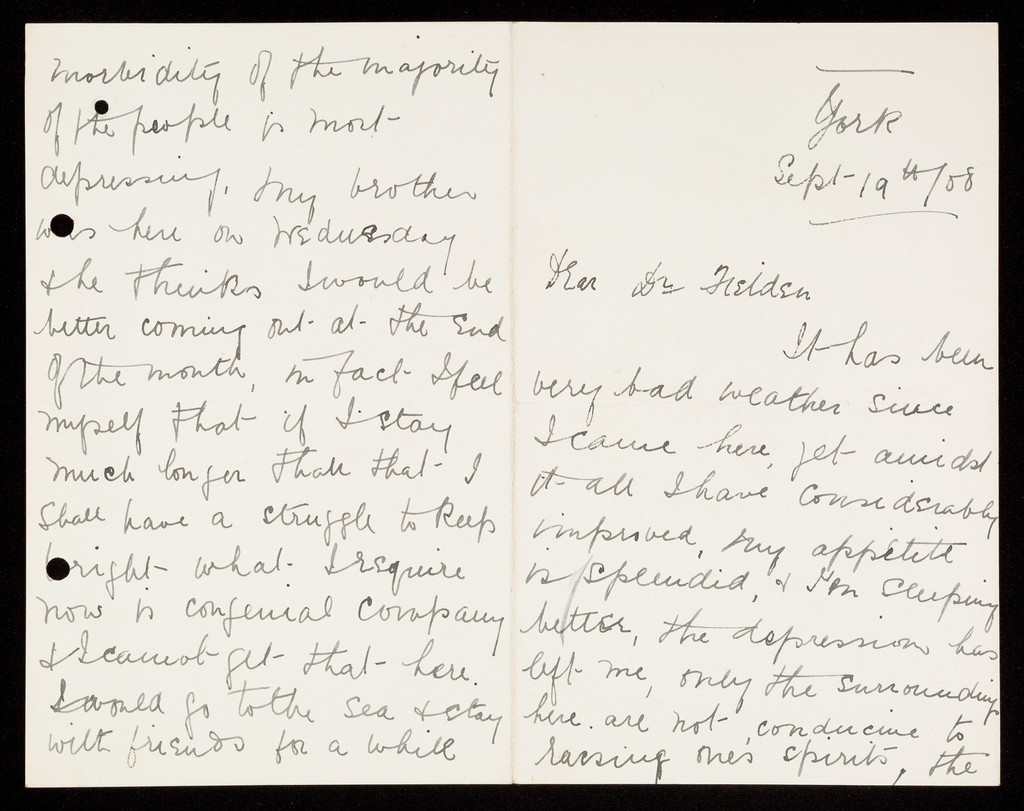 York
Sept 19th/08
Dear Dr Fielden
It has been
very bad weather since
I came here, yet amidst
it all I have considerably
improved, my appetite
is splendid, & I'm sleeping
better, the depression has
left me, only the surroundings
here are not conducive to
raising one's spirits, the
morbidity of the majority
of the people is most
depressing. My brother
was here on Wednesday
& he thinks I would be
better coming out at the end
of the month, in fact I feel
myself that if I stay
much longer than that I
shall have a struggle to keep
bright what I require
now is congenial company
& I cannot get that here.
I would go to the sea & stay
with friends for a while